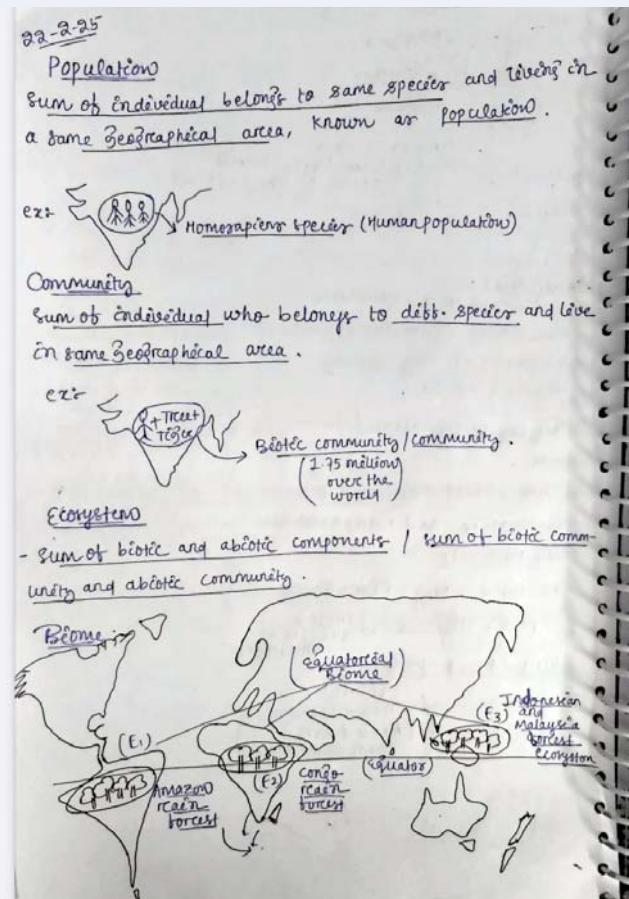 22-2-25
Population
Sum of individual belongs to same species and living in
a same geographical area, known as population.
ex:-
Homosapiens species (Human population)
Community
Sum of individual who belongs to diff. species and live
in same geographical area.
ex:-
+ Tree +
Tiger
Biotic community / community.
(1.75 million
over the
world)
Ecosystem
- sum of biotic and abiotic components / sum of biotic comm-
unity and abiotic community.
Biome
(Equatorial
Biome)
(E1)
Amazon
rain
forest
(E2)
Congo
rain
forest
(Equator)
(E3)
Indonesian
and
Malaysia
forest
ecosystem